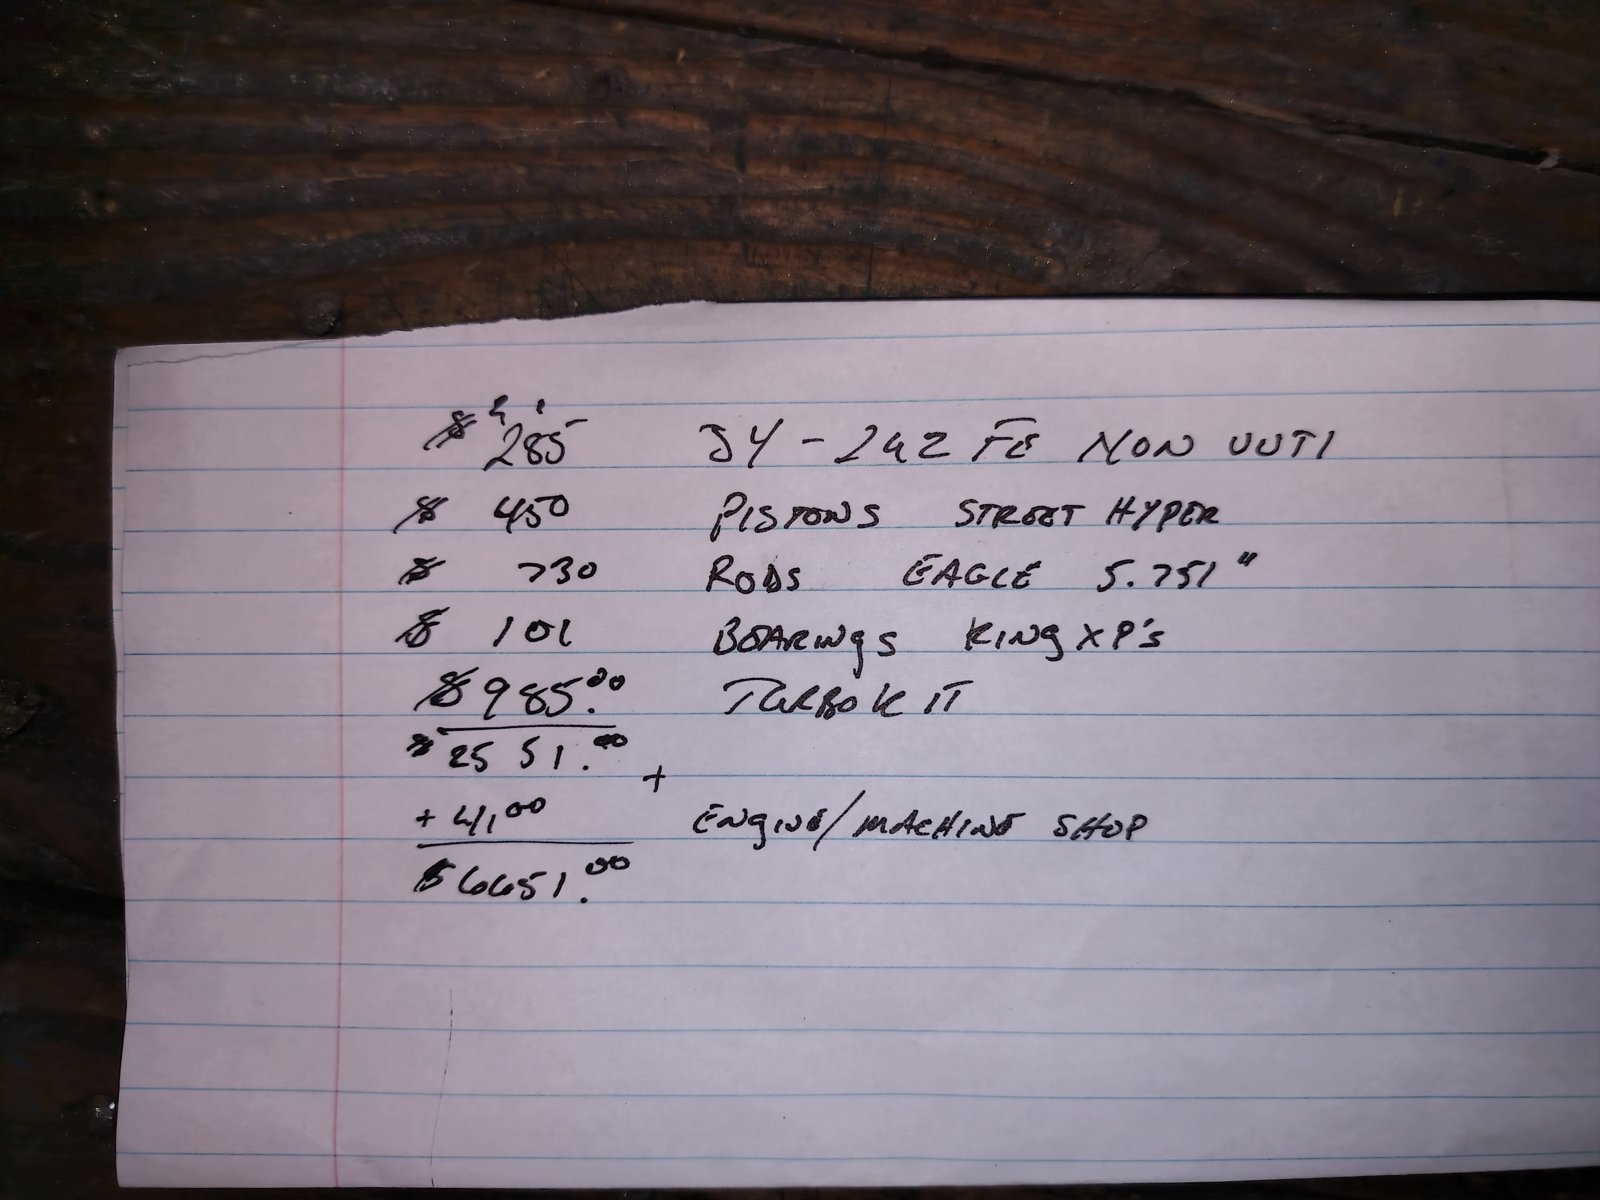 $ 285 JY - 2AZ FE NON VVTI
$ 450 PISTONS STREET HYPER
$ 730 RODS EAGLE 5.751"
$ 101 BEARINGS KING XP'S
$ 985.00 TURBO KIT
$ 2551.00 +
+ 4100 ENGINE/MACHINE SHOP
$ 6651.00